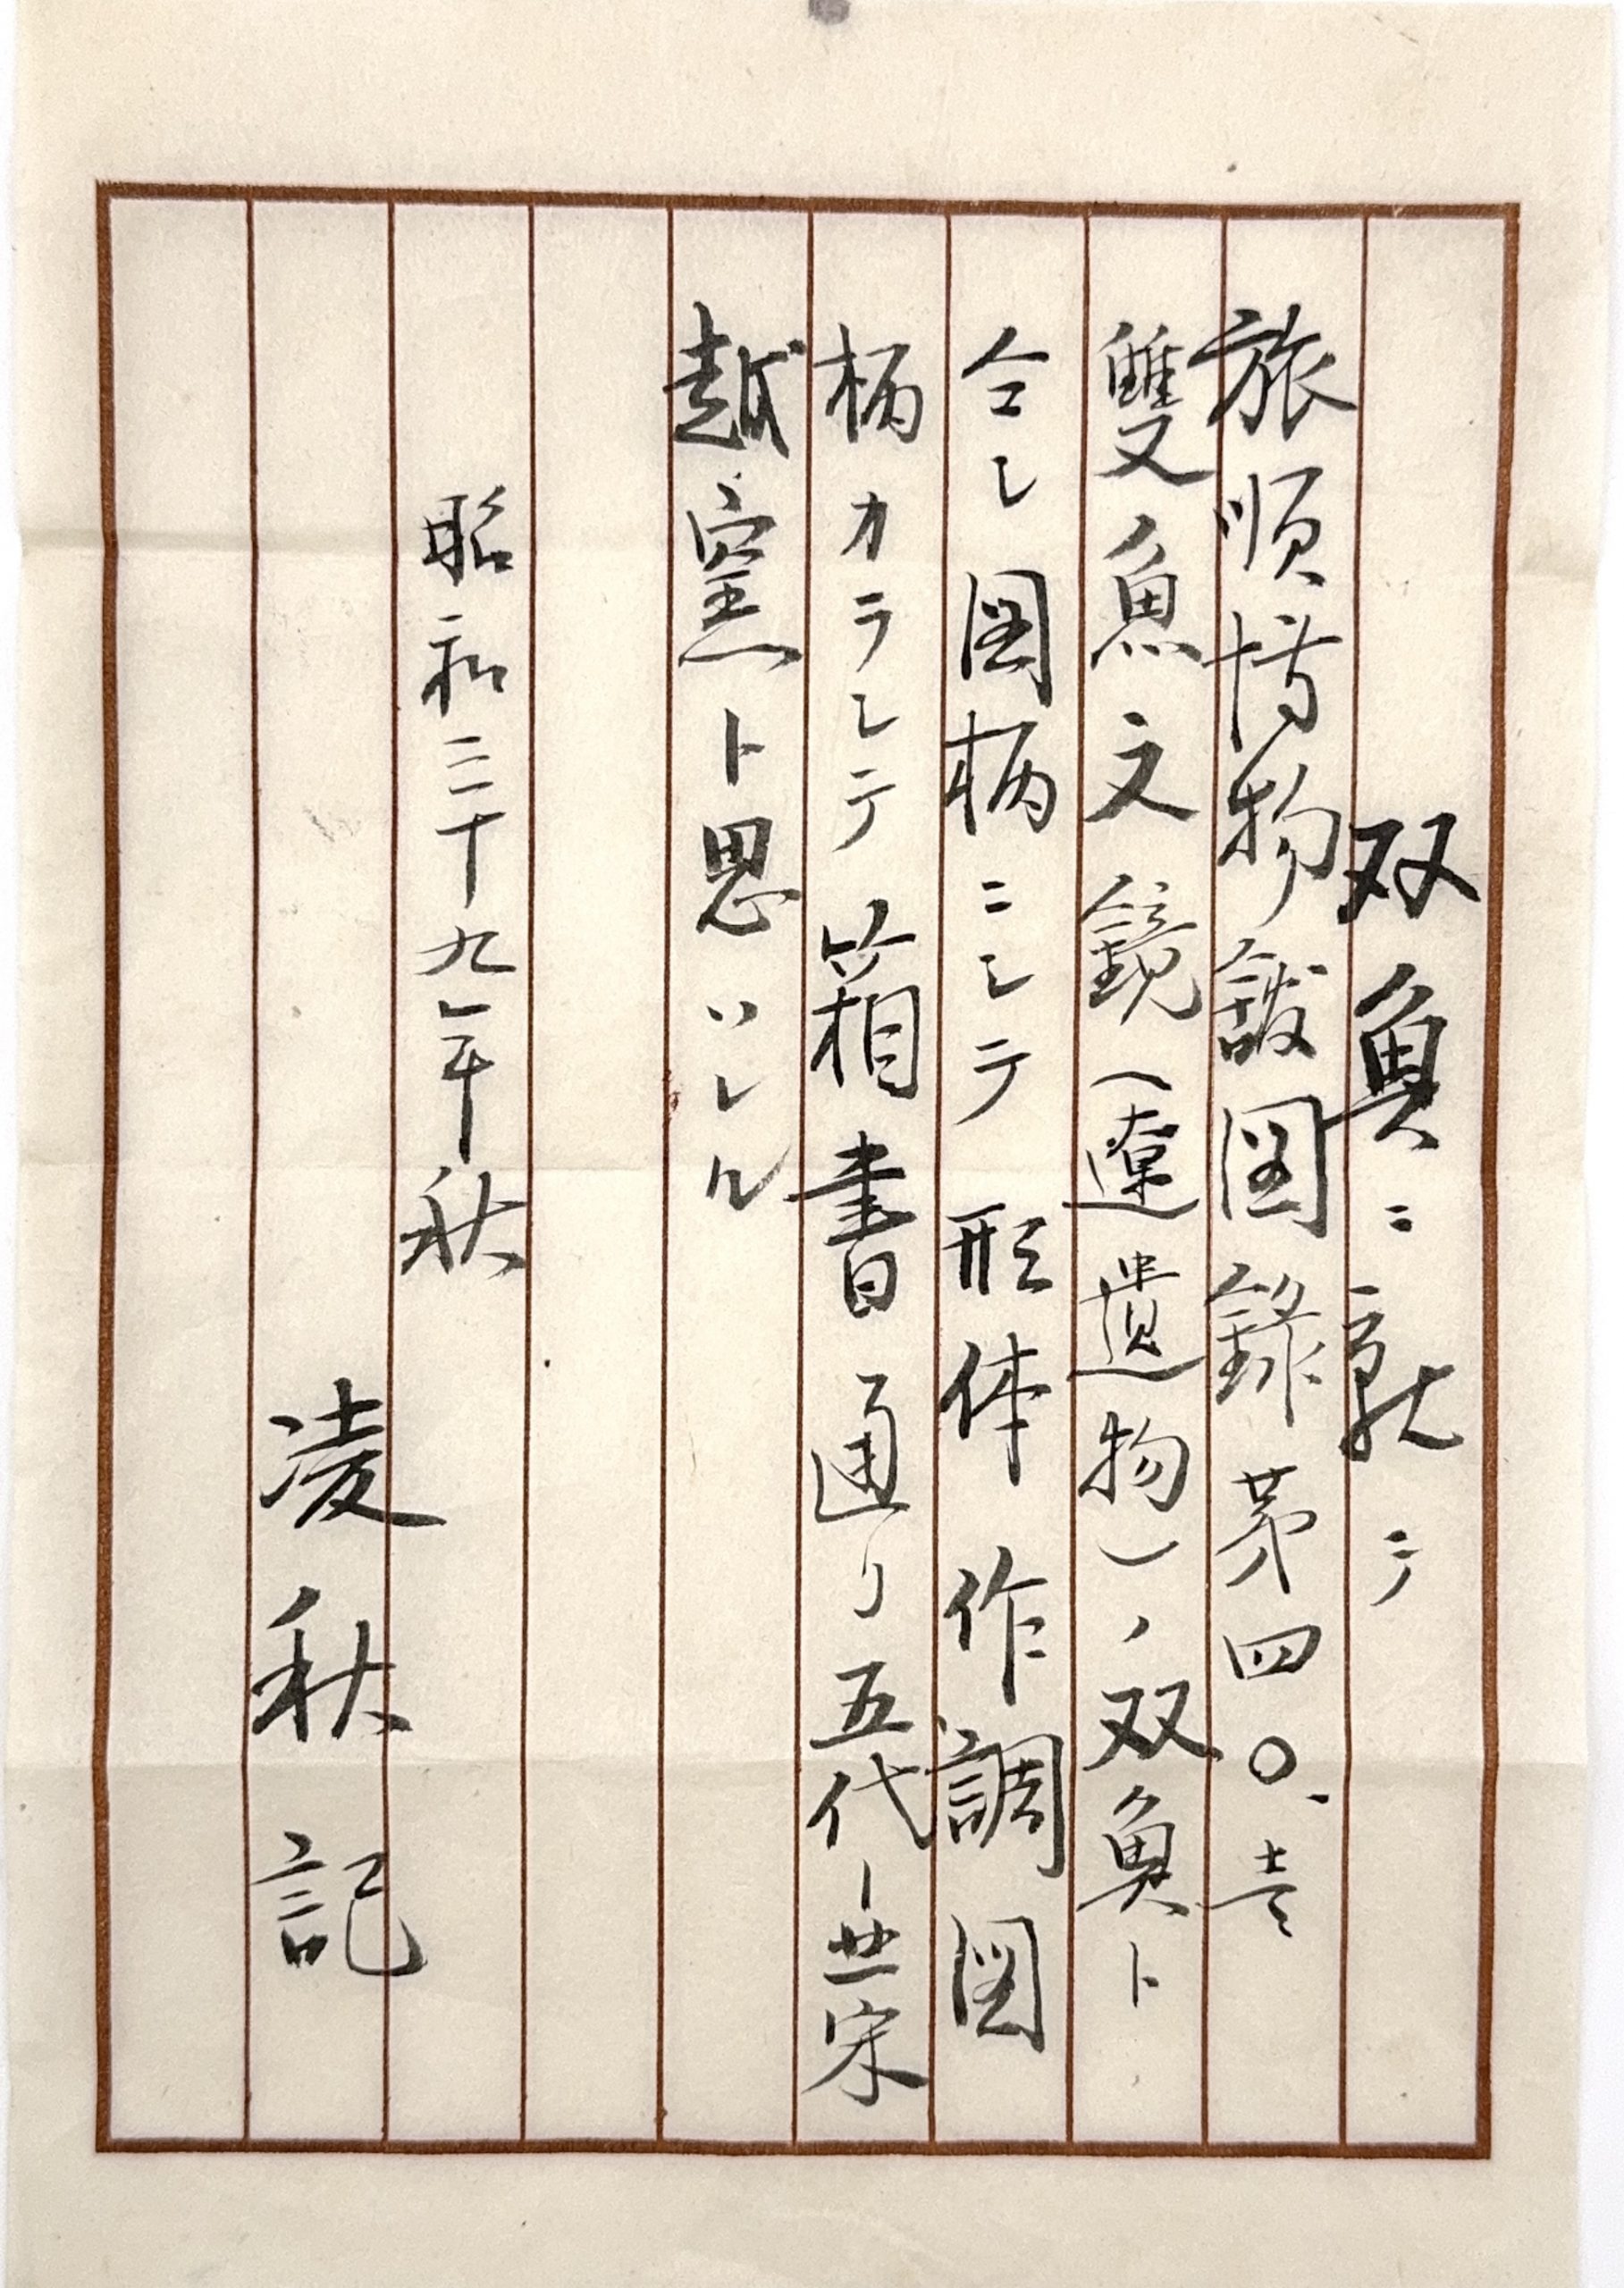 双魚ニ就テ
旅順博物舘図録第四〇.壱
雙魚文鏡(遼遺物)ノ双魚ト
仝シ図柄ニシテ形体作調図
柄カラシテ箱書通リ五代ー北宋
越窯ト思ハレル
昭和三十九年秋
凌秋記